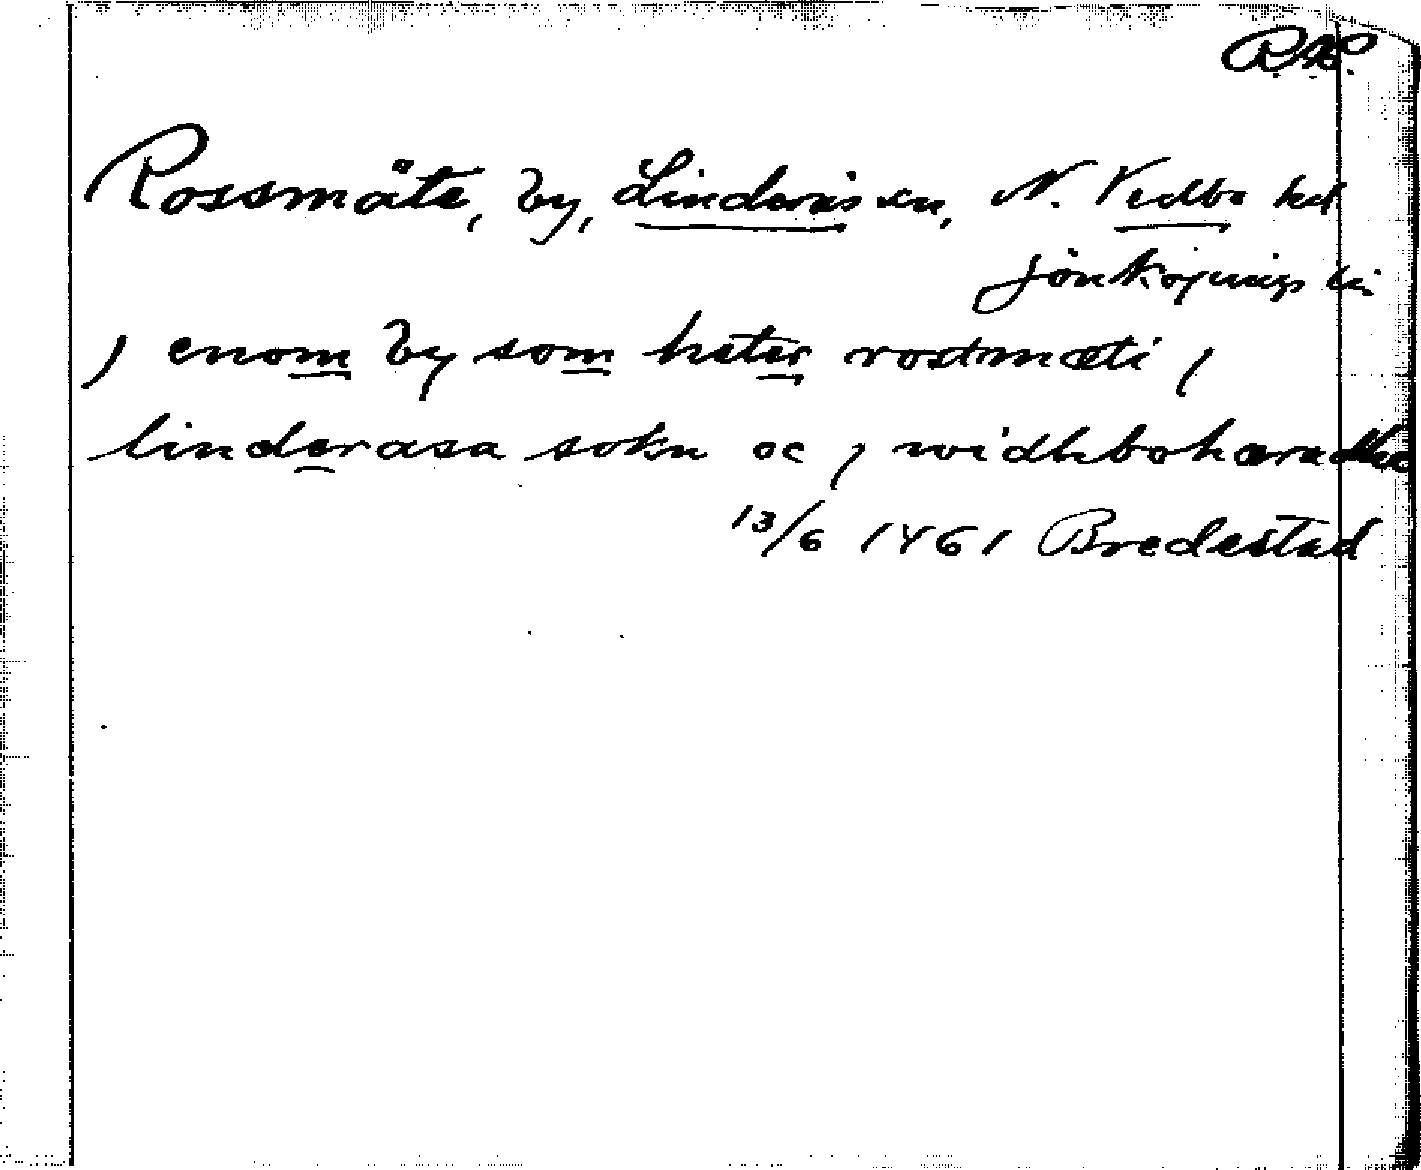 R.A.P.
Rossmäte, by, Linderås sn, N. Vedbo hd
Jönköpings län
j enom by som heter rostmæti j
linderasa sokn oc j widhbohæradhe
13/6 1461 Bredestad